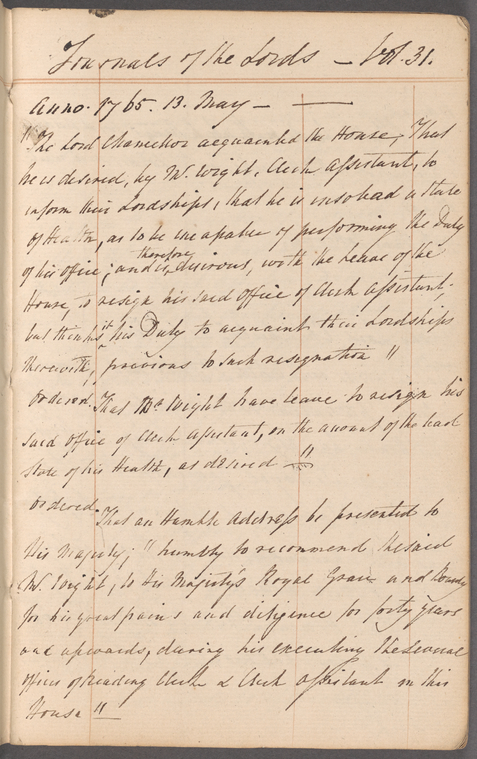 Journals of the Lords – Vol. 31.
Anno. 1765. 13. May –
"The Lord Chancellor acquainted the House, That
he is desired, by Mr. Wight, Clerk Assistant, to
inform their Lordships, that he is in so bad a State
of Health, as to be incapable of performing the Duty
of his office; and is therefore desirous, with the Leave of the
House, to resign his said Office of Clerk Assistant;
but thinks it his Duty to acquaint their Lordships
therewith, previous to such resignation "
Ordered. That Mr. Wight have leave to resign his
said Office of Clerk Assistant, on the account of the bad
State of his Health, as desired "
Ordered.
That an Humble Address be presented to
His Majesty; "humbly to recommend the said
Mr. Wight, to His Majesty's Royal Grace and Bounty
for his great pains and diligence for forty years
and upwards, during his executing the several
Offices of Reading Clerk & Clerk Assistant in this
House "